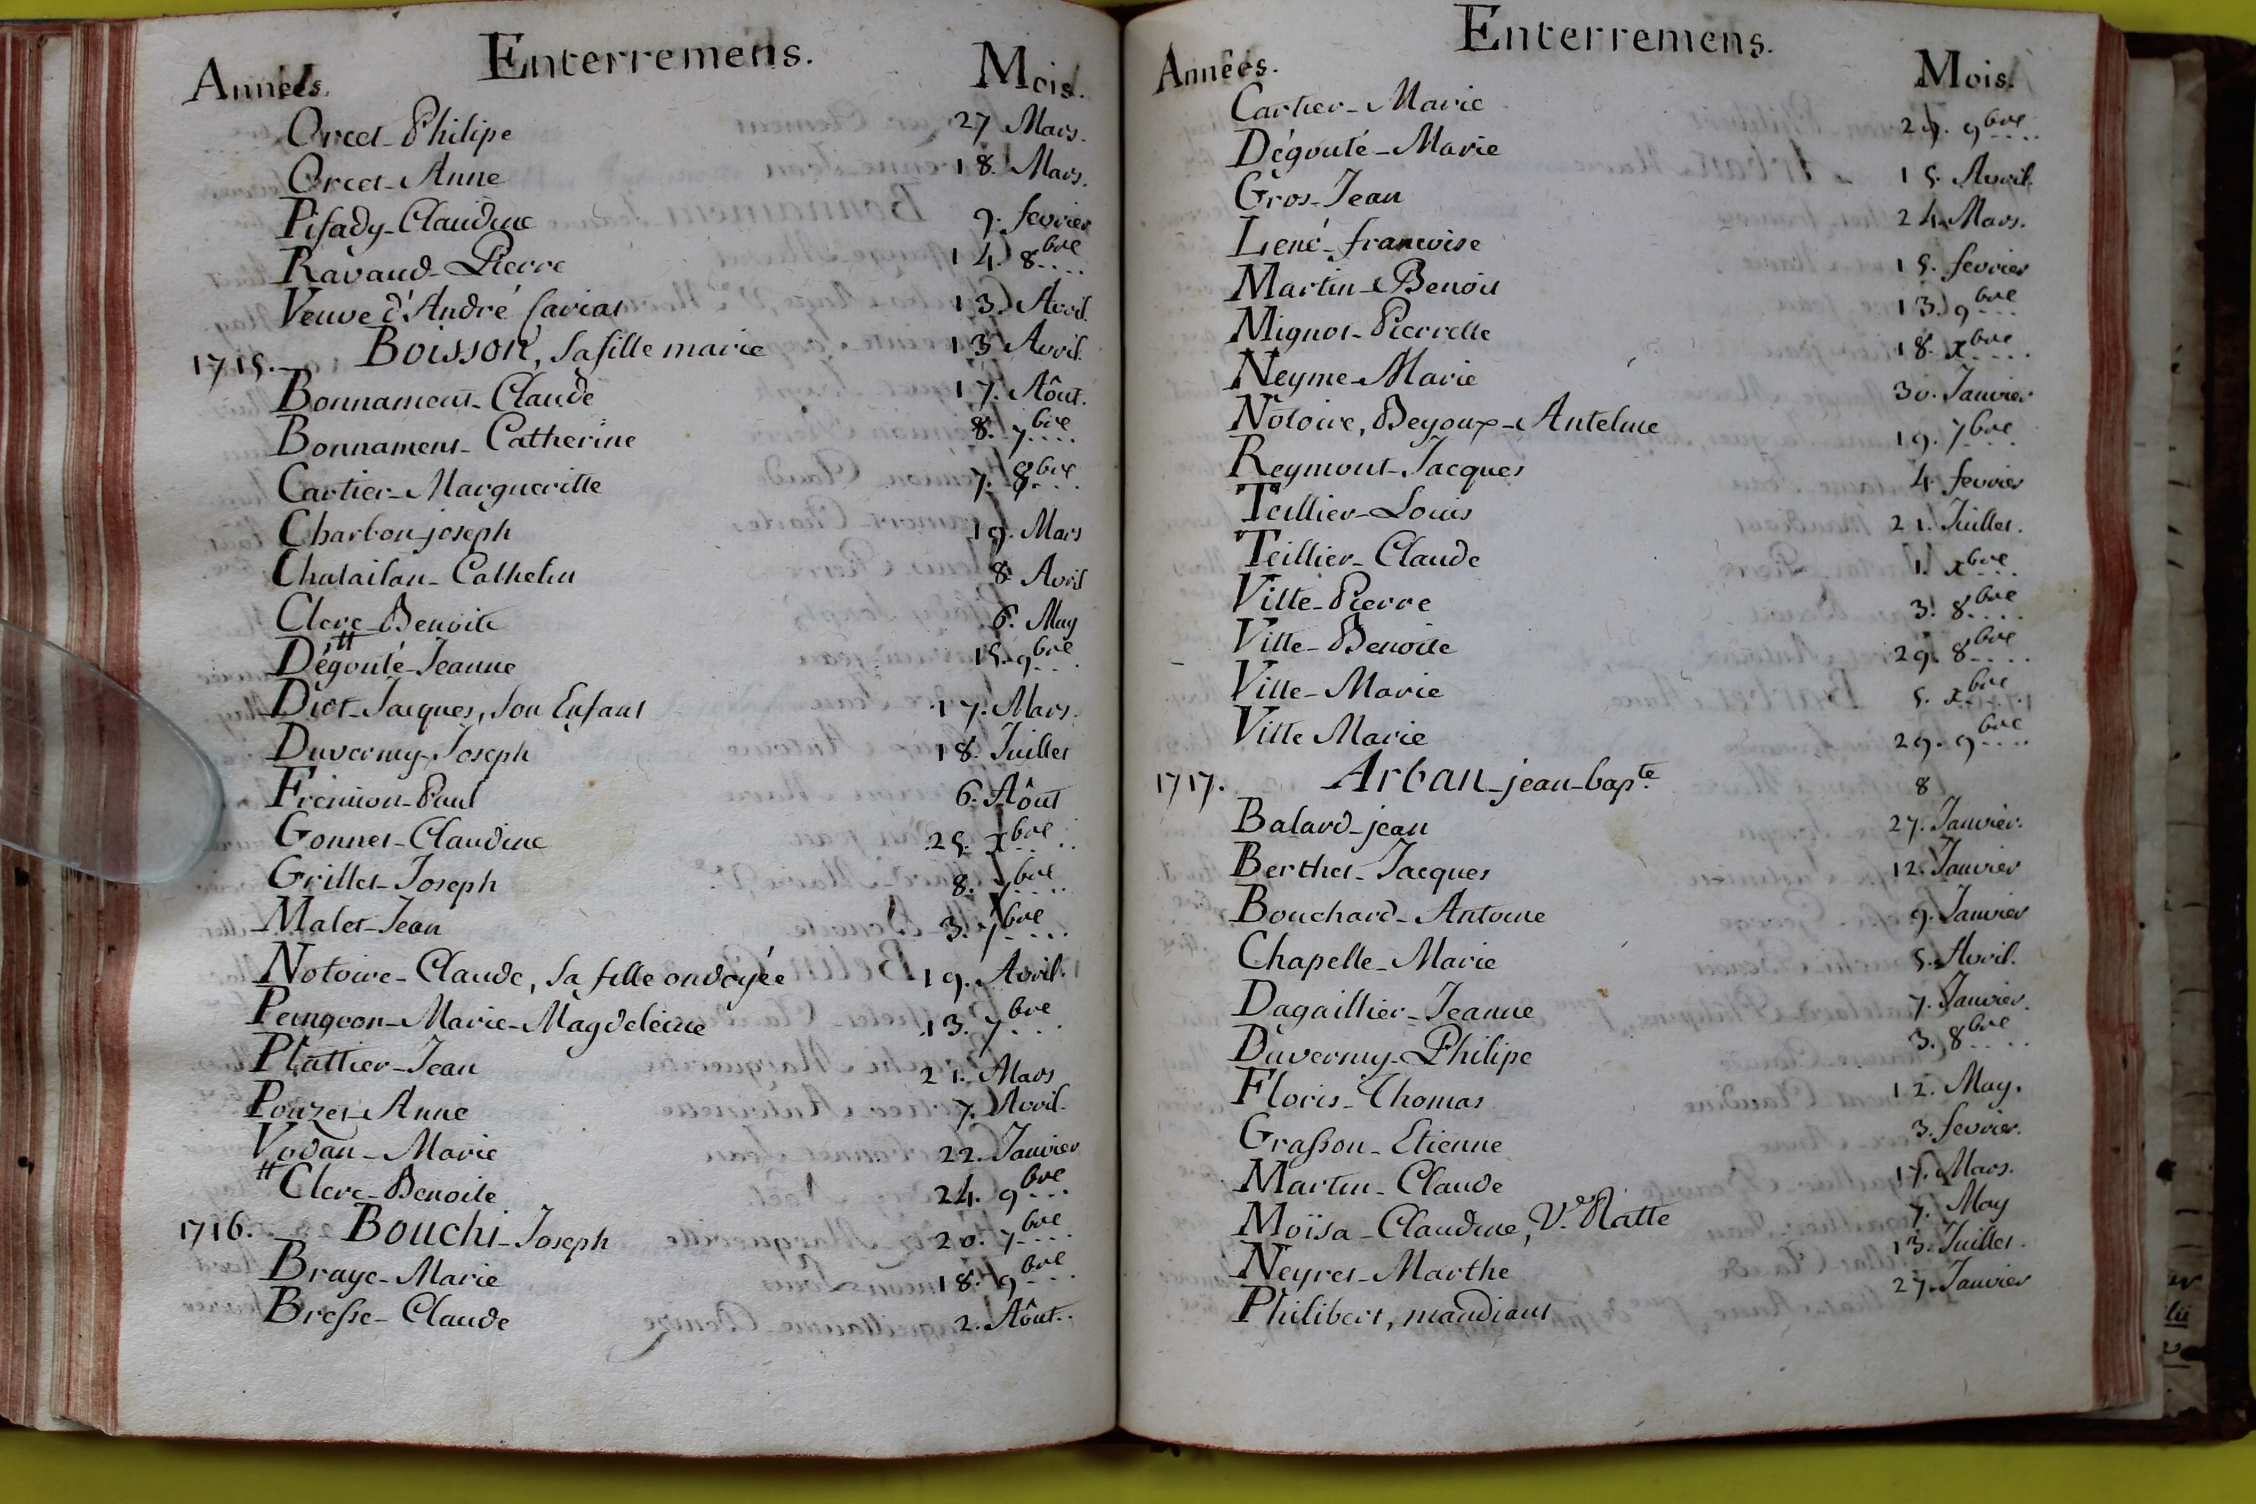 Enterremens.
Années. Mois.
Orcet - Philipe 27 Mars.
Orcet - Anne 18. Mars.
Pisady - Claudine 9. fevrier
Ravaud - Pierre 14. 8bre....
Veuve d'André Cariat 13. Avril.
1715. Boisson, Sa fille marie 13 Avril.
Bonnament - Claude 17. Aôut.
Bonnament - Catherine 8. 7bre....
Cartier - Margueritte 7. 8bre....
Charbon - joseph 19. Mars
Chatailan - Cathelin 8. Avril
Clerc - Benoite 6. May
Dégouté - Jeanne 15. 9bre...
Diot - Jacques, Son Enfant 17. Mars.
Duvernay - Joseph 18. Juillet
Fremion - Paul 6. Aôut
Gonnet - Claudine 25. xbre....
Grillet - Joseph 8. 7bre....
Malet - Jean 3. 7bre....
Notoire - Claude, Sa fille ondoyée 19. Avril.
Peingeon - Marie - Magdeleine 13. 7bre...
Plattier - Jean 21. Mars
Pouzet - Anne 7. Avril.
Vodan - Marie 22. Janvier
# Clerc - Benoite 24. 9bre...
1716. Bouchi - Joseph 20. 7bre....
Braye - Marie 18. 9bre...
Bresse - Claude 2. Aôut.
Enterremens.
Années. Mois.
Cartier - Marie 9bre....
Dégouté - Marie 15. Avril.
Gros - Jean 24. Mars.
Lené - francoise 15. fevrier
Martin - Benoit 13. 9bre...
Mignot - Pierrette 18. xbre....
Neyme - Marie 30. Janvier
Notoire, Beyoux - Antelme 19. 7bre...
Reymont - Jacques 4. fevrier
Teillier - Louis 21. Juillet.
Teillier - Claude 1. xbre...
Ville - Pierre 3. 8bre....
Ville - Benoite 29. 8bre....
Ville - Marie 5. xbre...
Ville Marie 29. 9bre....
1717. Arban - jean - bapte. 8
Balard - jean 27. Janvier.
Berthet - Jacques 12. Janvier
Bouchard - Antoine 9. Janvier
Chapelle - Marie 5. Avril.
Dagaillier - Jeanne 7. Janvier.
Duvernay - Philipe 3. 8bre....
Floris - Thomas 12. May.
Grasson - Etienne 3. fevrier.
Martin - Claude 17. Mars.
Moïsa - Claudine, Ve. Ratte 7. May
Neyret - Marthe 13. Juillet.
Philibert, mandiant 27. Janvier